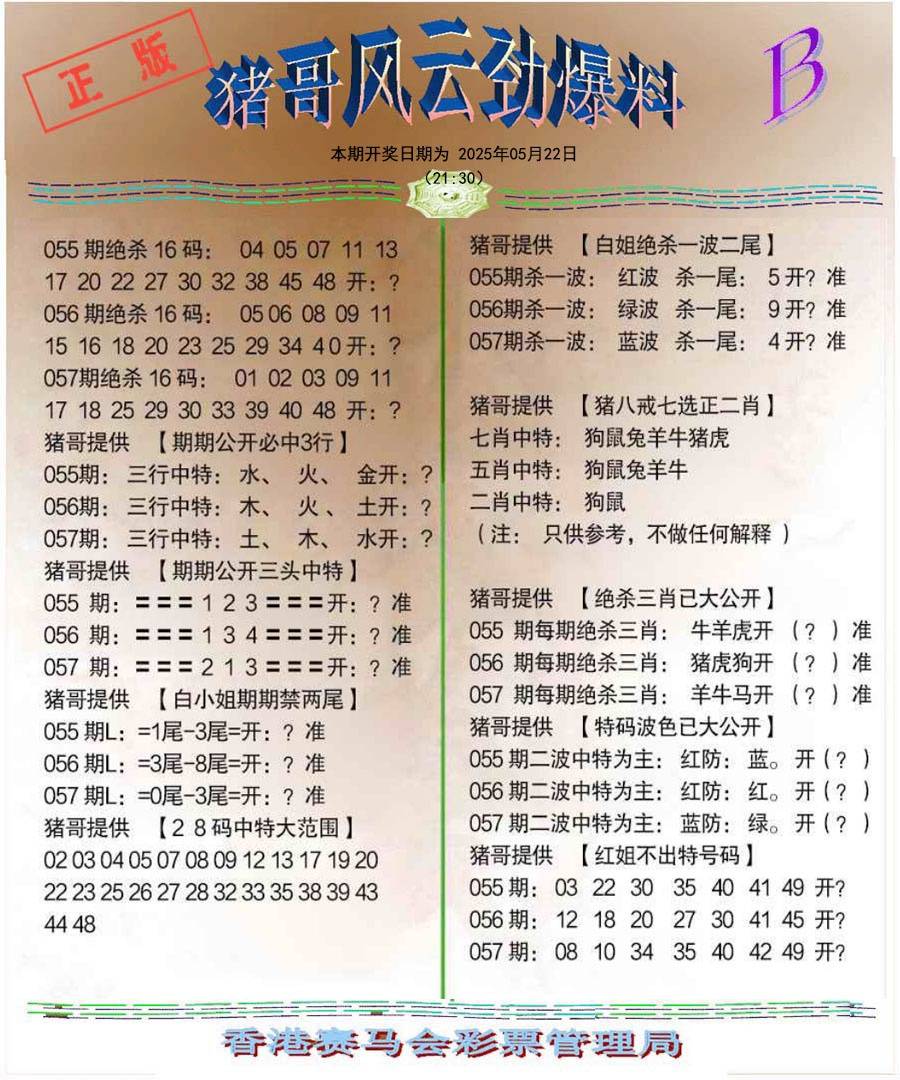 正版
猪哥风云劲爆料
B
本期开奖日期为 2025年05月22日
(21:30)
055 期绝杀 16 码： 04 05 07 11 13
17 20 22 27 30 32 38 45 48 开：?
056 期绝杀 16 码： 05 06 08 09 11
15 16 18 20 23 25 29 34 4 0 开：?
057期绝杀 16 码： 01 02 03 09 11
17 18 25 29 30 33 39 40 48 开：?
猪哥提供 【期期公开必中3行】
055期： 三行中特： 水、 火、 金开：?
056期： 三行中特： 木、 火、 土开：?
057期： 三行中特： 土、 木、 水开：?
猪哥提供 【期期公开三头中特】
055 期：=== 1 2 3 ===开：? 准
056 期：=== 1 3 4 ===开：? 准
057 期：=== 2 1 3 ===开：? 准
猪哥提供 【白小姐期期禁两尾】
055 期L：=1尾-3尾=开：? 准
056 期L：=3尾-8尾=开：? 准
057 期L：=0尾-3尾=开：? 准
猪哥提供 【2 8 码中特大范围】
02 03 04 05 07 08 09 12 13 17 19 20
22 23 25 26 27 28 32 33 35 38 39 43
44 48
猪哥提供 【白姐绝杀一波二尾】
055期杀一波： 红波 杀一尾： 5 开? 准
056期杀一波： 绿波 杀一尾： 9 开? 准
057期杀一波： 蓝波 杀一尾： 4 开? 准
猪哥提供 【猪八戒七选正二肖】
七肖中特： 狗鼠兔羊牛猪虎
五肖中特： 狗鼠兔羊牛
二肖中特： 狗鼠
（注： 只供参考，不做任何解释 ）
猪哥提供 【绝杀三肖已大公开】
055 期每期绝杀三肖： 牛羊虎开 （? ）准
056 期每期绝杀三肖： 猪虎狗开 （? ）准
057 期每期绝杀三肖： 羊牛马开 （? ）准
猪哥提供 【特码波色已大公开】
055 期二波中特为主： 红防： 蓝。 开（? ）
056 期二波中特为主： 红防： 红。 开（? ）
057 期二波中特为主： 蓝防： 绿。 开（? ）
猪哥提供 【红姐不出特号码】
055 期： 03 22 30 35 40 41 49 开?
056 期： 12 18 20 27 30 41 45 开?
057 期： 08 10 34 35 40 42 49 开?
香港赛马会彩票管理局